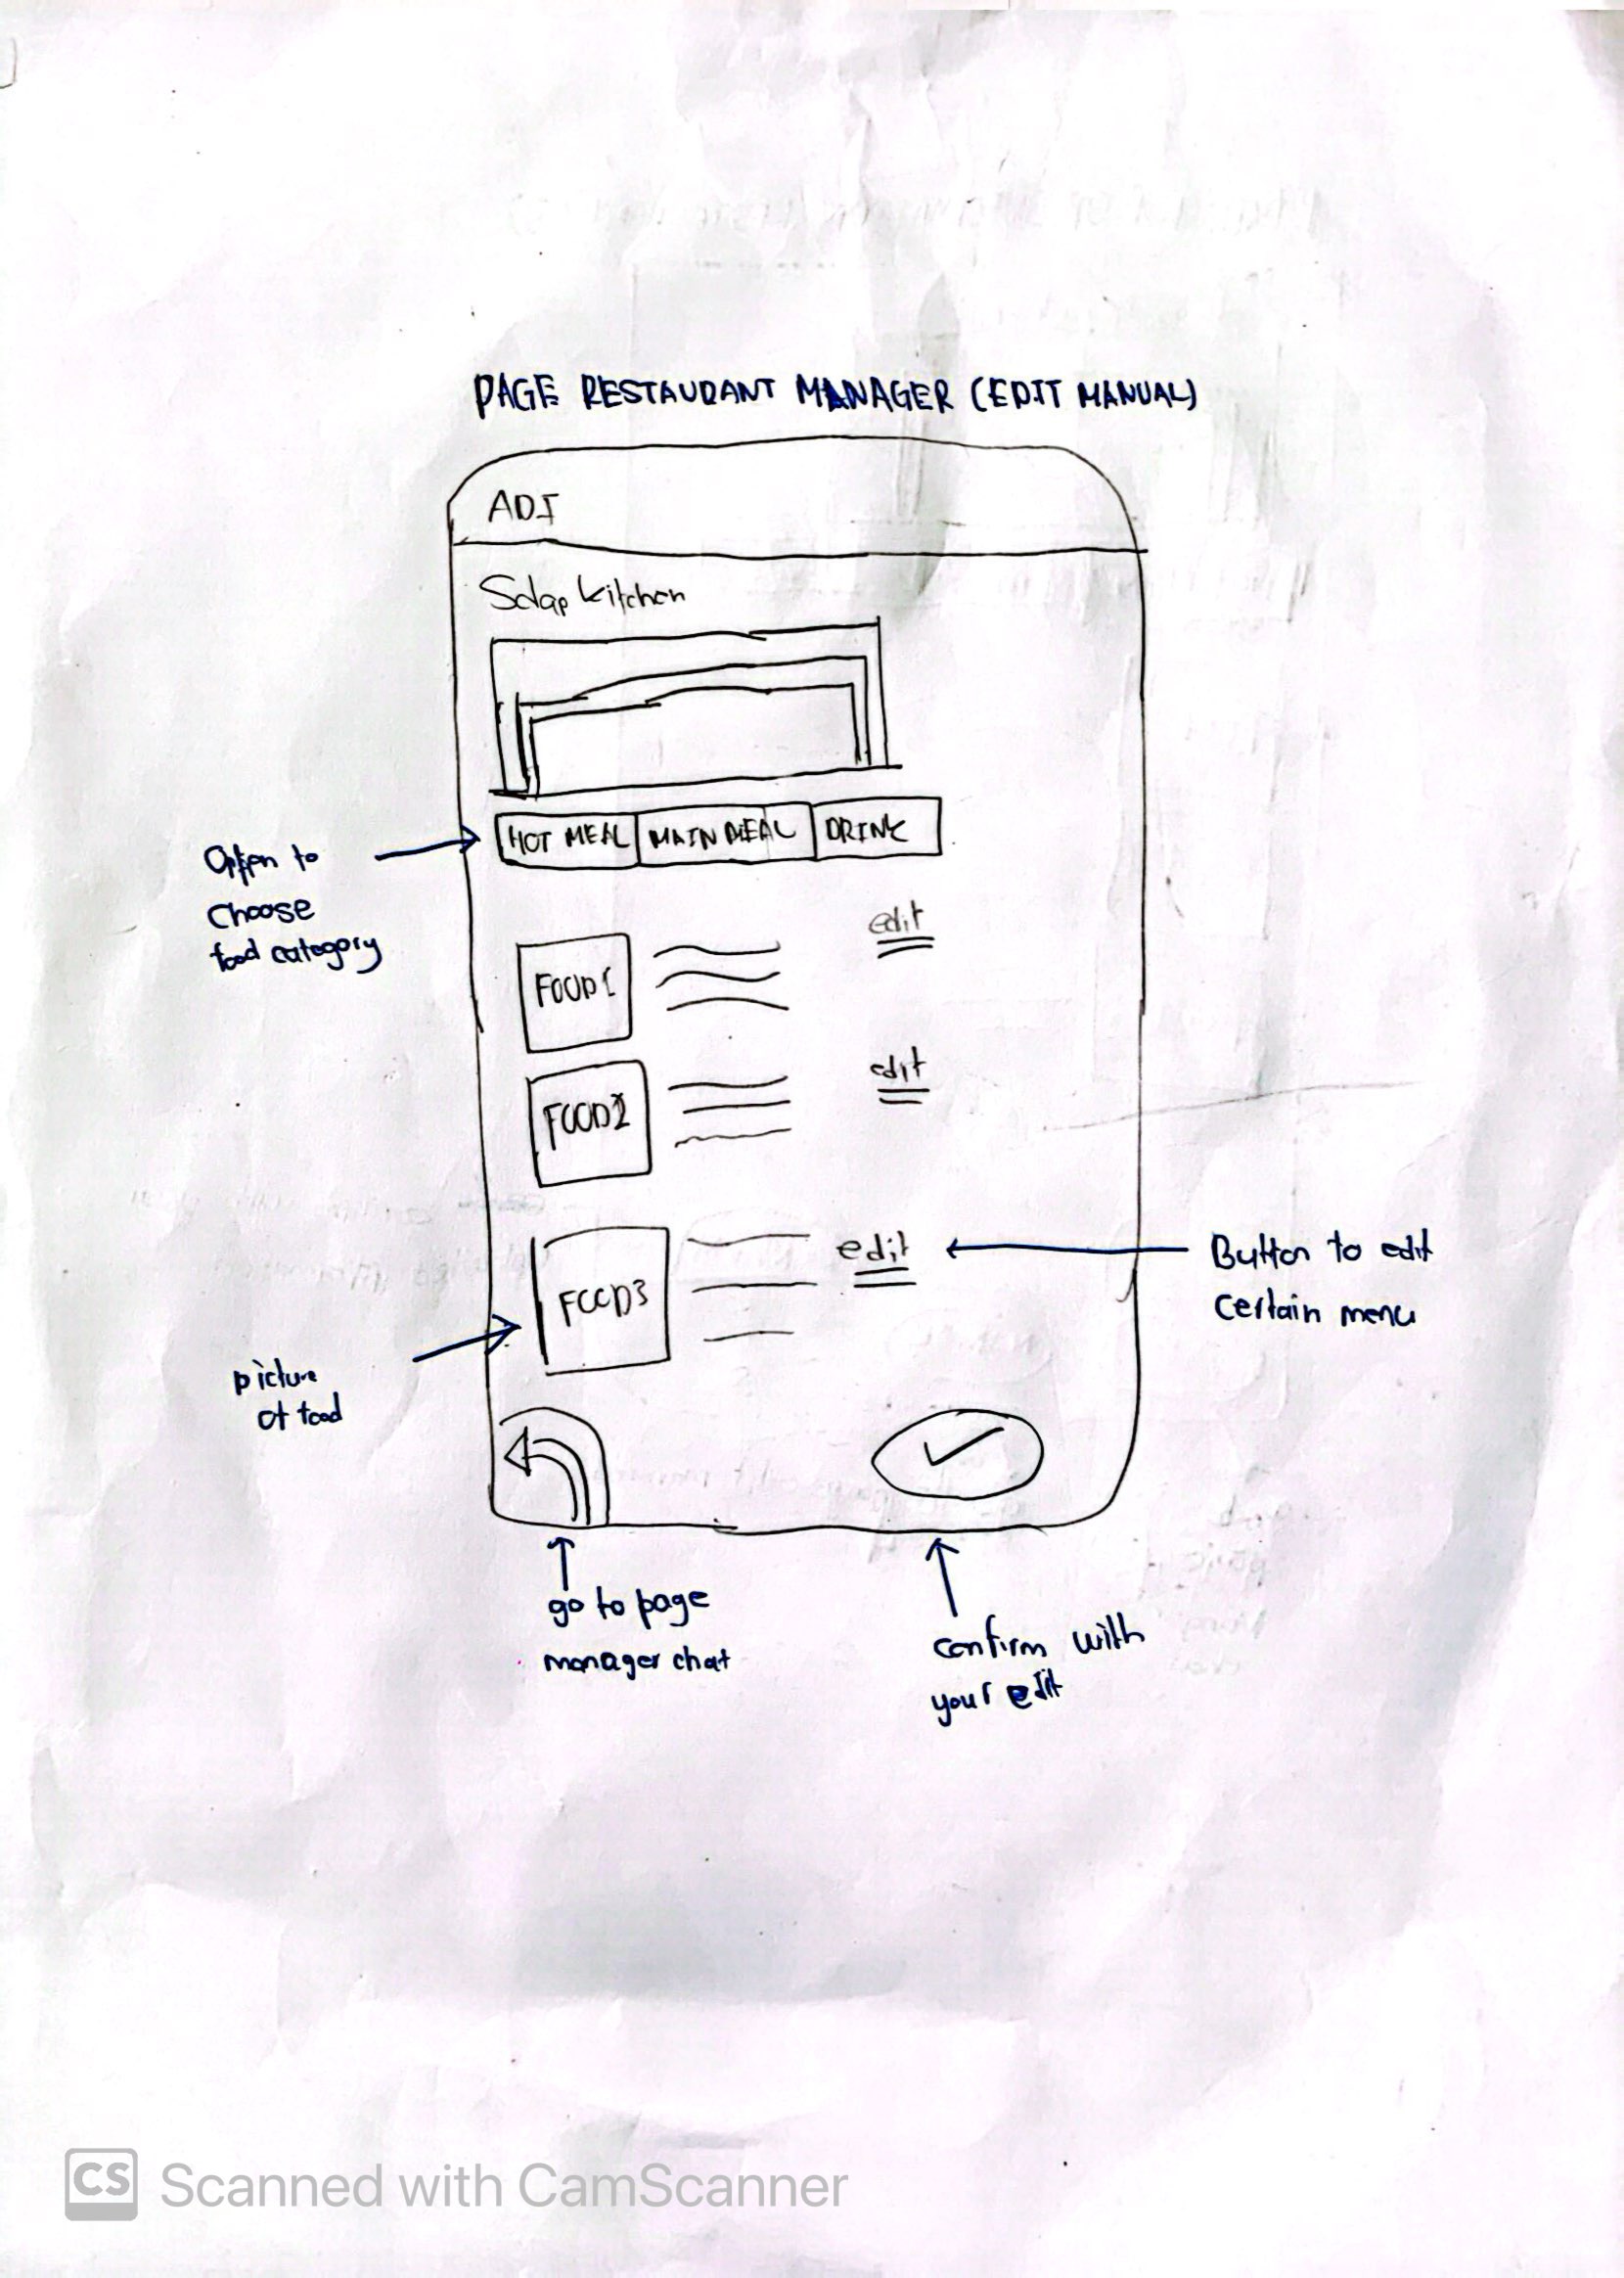 PAGE RESTAURANT MANAGER (EDIT MANUAL)
ADI
Sdap Kitchen
HOT MEAL MAIN MEAL DRINK
Option to
choose
food category
edit
FOOD1
edit
FOOD2
edit
Button to edit
certain menu
FOOD3
picture
of food
go to page
manager chat
confirm with
your edit
CS Scanned with CamScanner